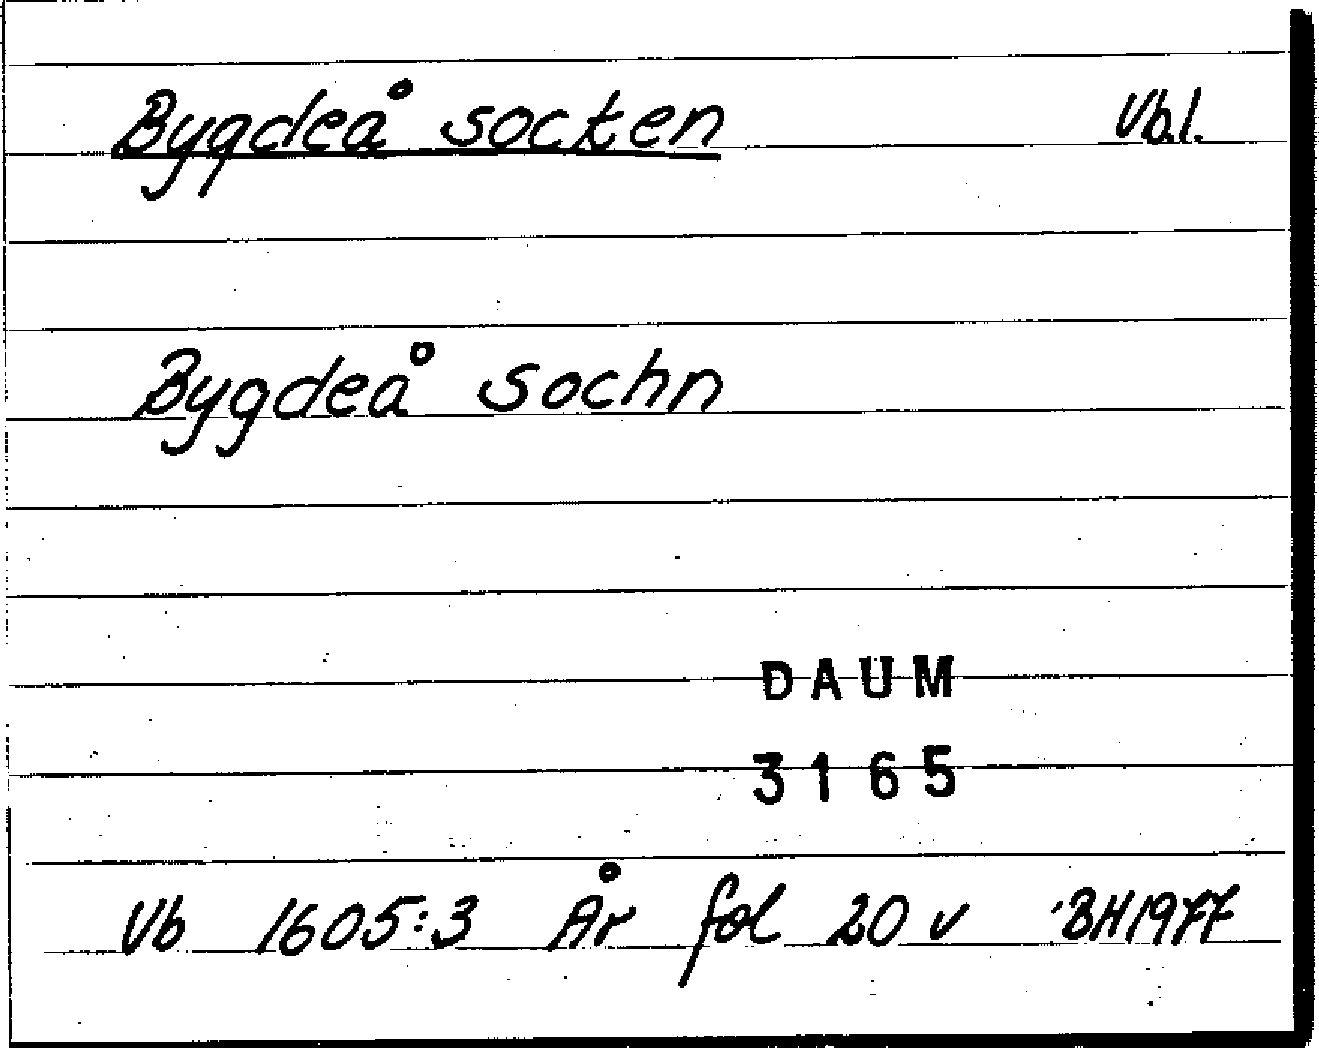 Bygdeå socken Vb.l.
Bygdeå sochn
DAUM
3165
Vb 1605:3 År fol 20 v BH1977